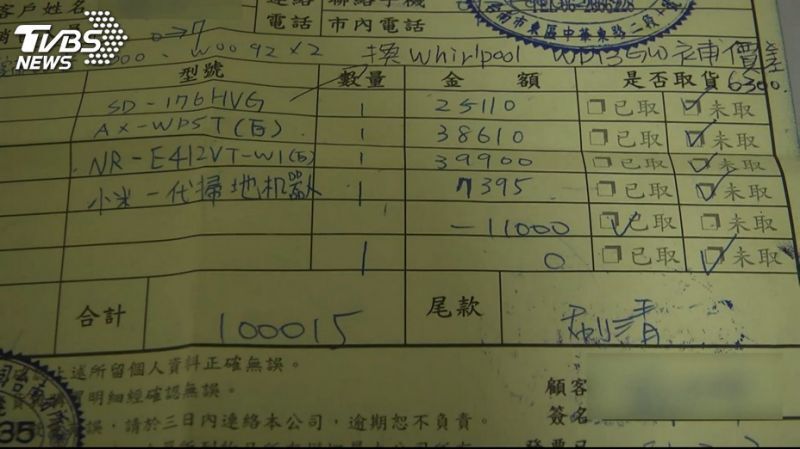 客戶姓名
連絡 聯絡手機
電話 市內電話
台南市東區中華東路二段
TVBS
NEWS
W0092×2 換 Whirlpool 補價差
6300.
型號 數量 金額 是否取貨
SD-176HVG 1 25110 已取 未取
AX-WP5T(白) 1 38610 已取 未取
NR-E412VT-W1(白) 1 39900 已取 未取
小米一代掃地机器人 1 7395 已取 未取
-11000 已取 未取
1 0 已取 未取
合計 100015 尾款 刷清
上述所留個人資料正確無誤。
明細經確認無誤。
誤，請於三日內連絡本公司，逾期恕不負責。
顧客
簽名
發票日
35